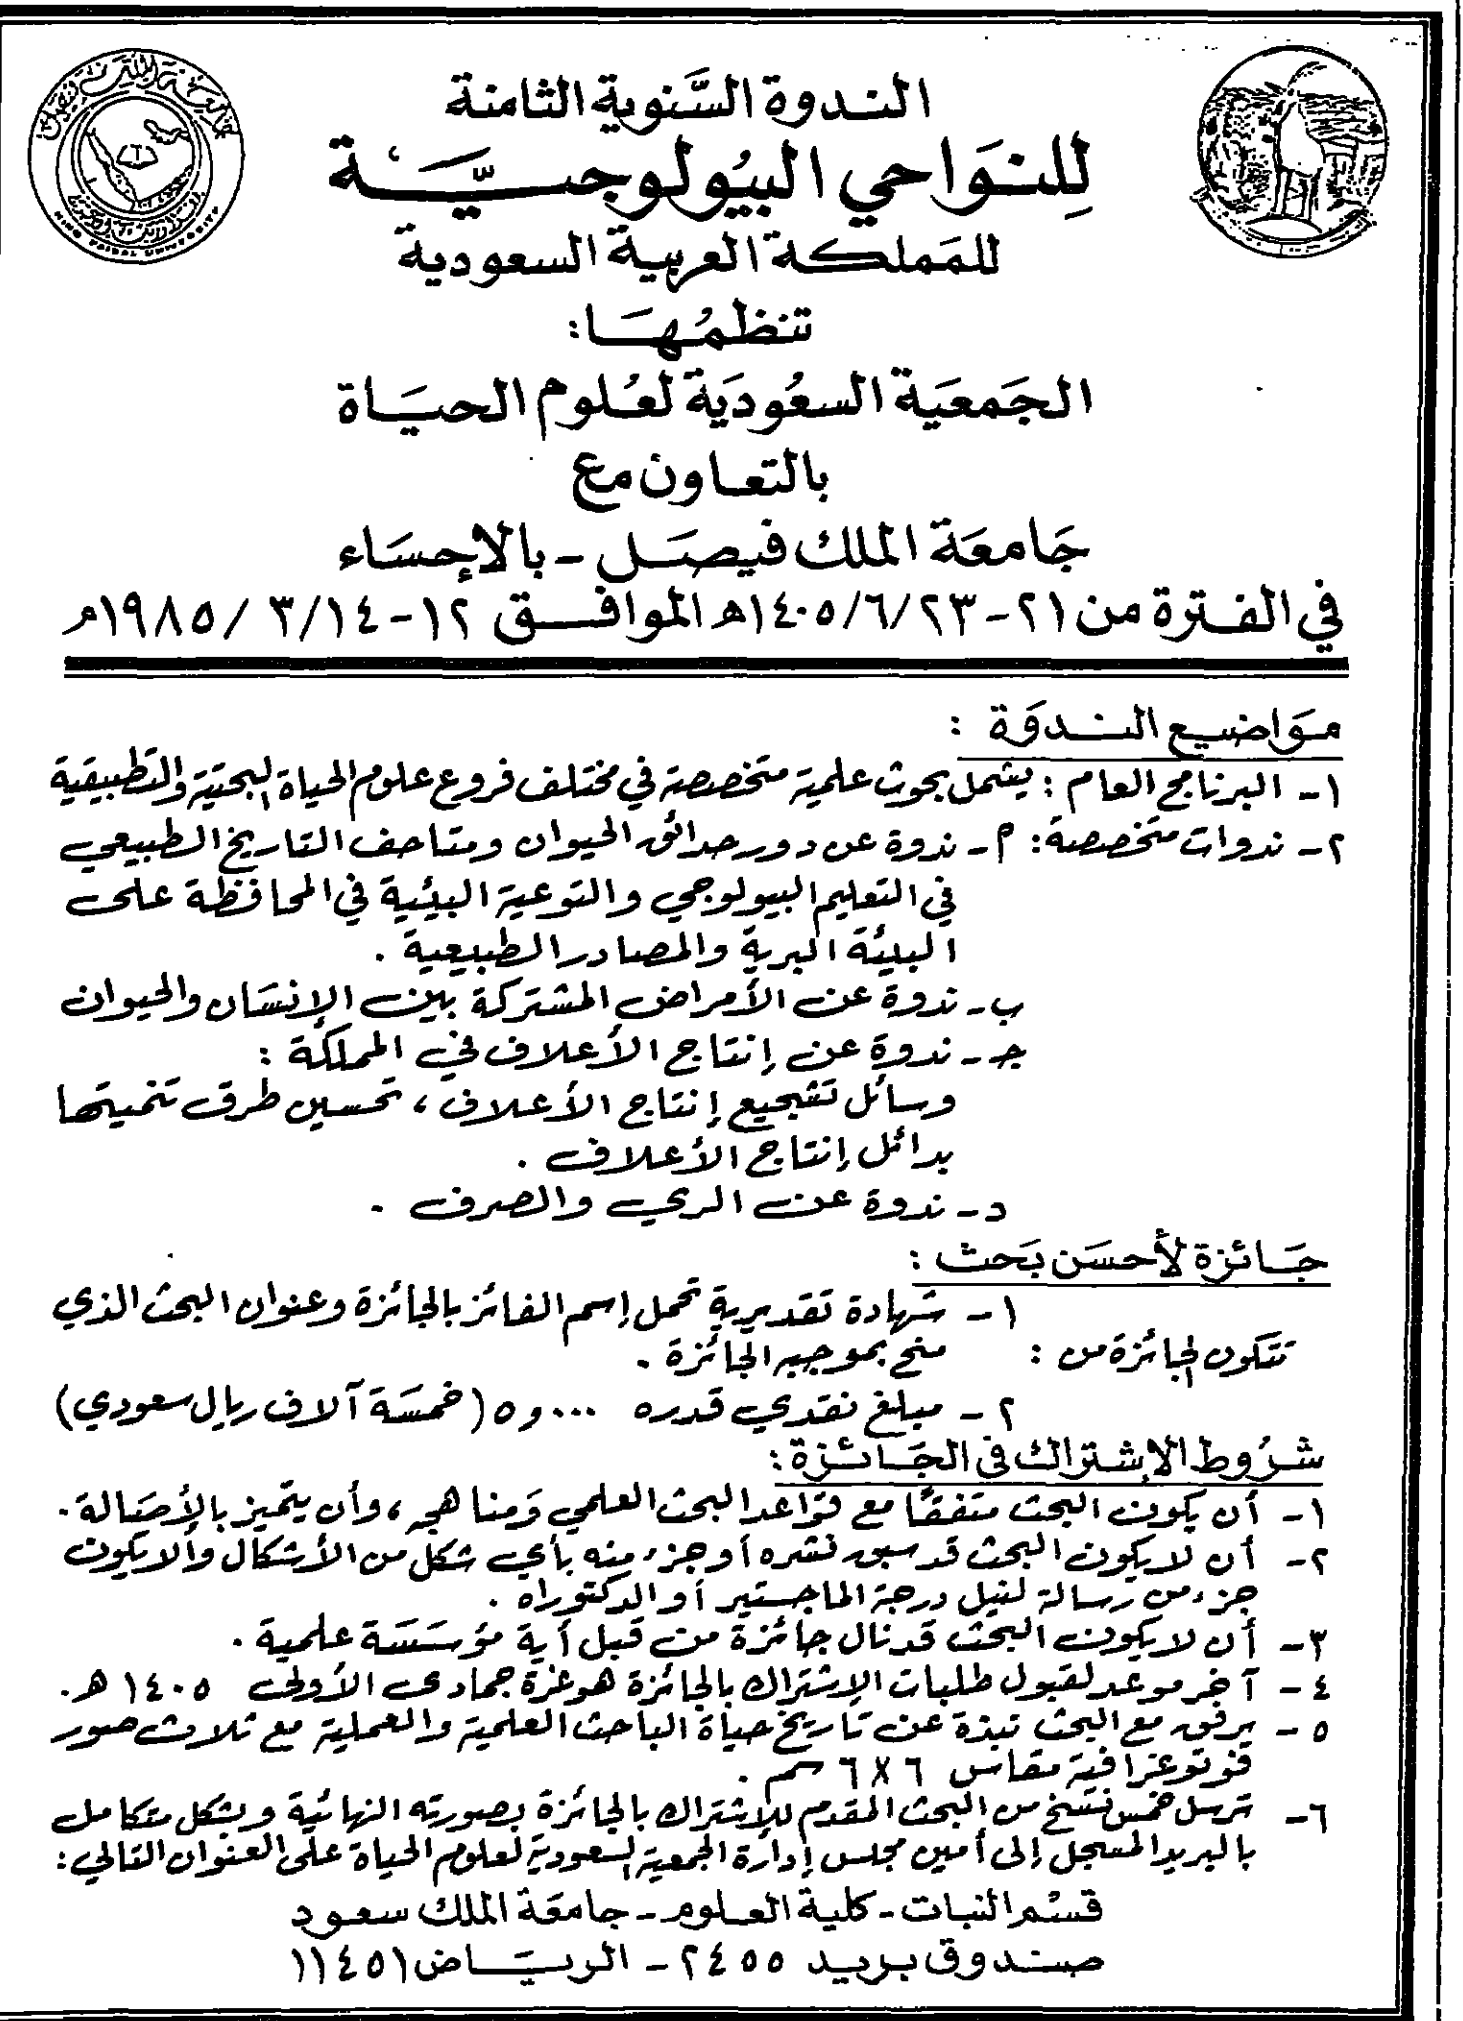 الندوة السَّنوية الثامنة
لِلنوَاحي البيُولوجسيَّة
للمَملكة العربية السعودية
تنظمُها:
الجَمعَية السعُوديَة لعُلوم الحيَاة
بالتعاون مع
جَامعَة الملك فيصَل - بالإحسَاء
في الفترة من ٢١-١٤٠٥/٦/٢٣هـ الموافق ١٢-٣/١٤ /١٩٨٥م
KING FAISAL UNIVERSITY
مَواضيع الندوَة :
١- البرنامج العام : يشمل بحوث علمية متخصصة في مختلف فروع علوم الحياة البحتية والتطبيقية
٢- ندوات متخصصة: أ- ندوة عن دور حدائق الحيوان ومتاحف التاريخ الطبيعي
في التعليم البيولوجي والتوعية البيئية في المحافظة على
البيئة البرية والمصادر الطبيعية .
ب- ندوة عن الأمراض المشتركة بين الإنسَان والحيوان
جـ- ندوة عن إنتاج الأعلاف في المملكة :
وسائل تشجيع إنتاج الأعلاف ، تحسين طرق تنميتها
بدائل إنتاج الأعلاف .
د- ندوة عن الري والصرف .
جَائزة لأحسَن بَحث :
١- شهادة تقديرية تحمل إسم الفائز بالجائزة وعنوان البحث الذي
تتكون الجائزة من : منح بموجبه الجائزة .
٢- مبلغ نقدي قدره ٠٠٠و٥ (خمسَة آلاف ريال سعودي)
شرُوط الإشتراك في الجَائزة :
١- أن يكون البحث متفقًا مع قوَاعد البحث العلمي وَمناهجه ، وأن يتميز بالأصَالة .
٢- أن لايكون البحث قد سبق نشره أو جزء منه بأي شكل من الأشكال وألايكون
جزء من رسالة لنيل درجة الماجستير أو الدكتوراه .
٣- أن لايكون البحث قد نال جائزة من قبل أية مؤسَسَة علمية .
٤- آخر موعد لقبول طلبات الإشتراك بالجائزة هو غرة جمادى الأولى ١٤٠٥ هـ.
٥- يرفق مع البحث نبذة عن تاريخ حياة الباحث العلمية والعملية مع ثلاث صور
فوتوغرافية مقاس ٦X٦ سم .
٦- ترسل خمس نسخ من البحث المقدم للإشتراك بالجائزة بصورته النهائية وبشكل متكامل
بالبريد المسجل إلى أمين مجلس إدارة الجمعية السعودية لعلوم الحياة على العنوان التالي :
قسْم النبات - كلية العلوم - جامعَة الملك سعود
صندوق بريد ٢٤٥٥ - الريَاض ١١٤٥١